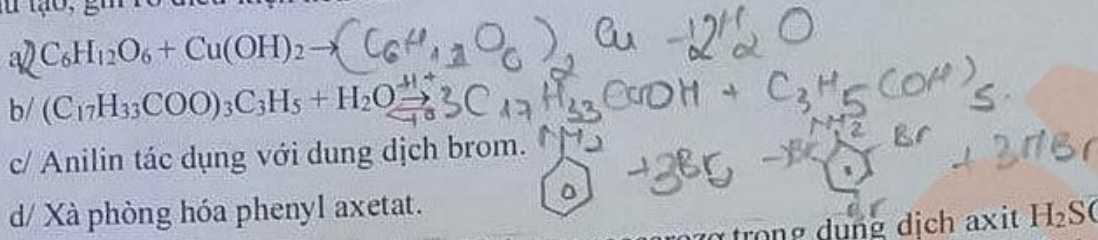 a/ 2C₆H₁₂O₆ + Cu(OH)₂ → (C₆H₁₂O₆)₂ Cu - 2H₂O
b/ (C₁₇H₃₃COO)₃C₃H₅ + H₂O ⇌ H⁺ t° 3C₁₇H₃₃COOH + C₃H₅(OH)₃.
c/ Anilin tác dụng với dung dịch brom. NH₂ + 3Br₂ → Br NH₂ Br Br + 3HBr
d/ Xà phòng hóa phenyl axetat.
trong dung dịch axit H₂SO